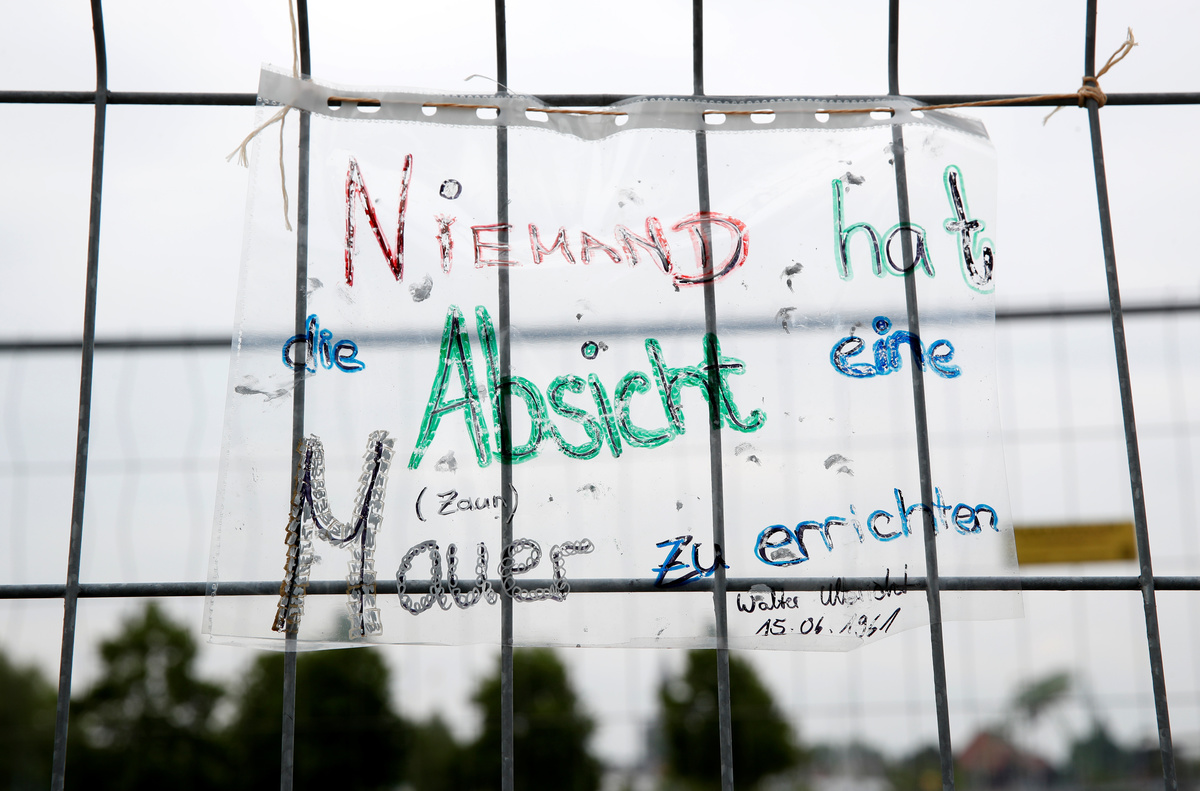 NiEMAND hat
die Absicht eine
(Zaun)
Mauer zu errichten
Walter Ulbricht
15.06.1961